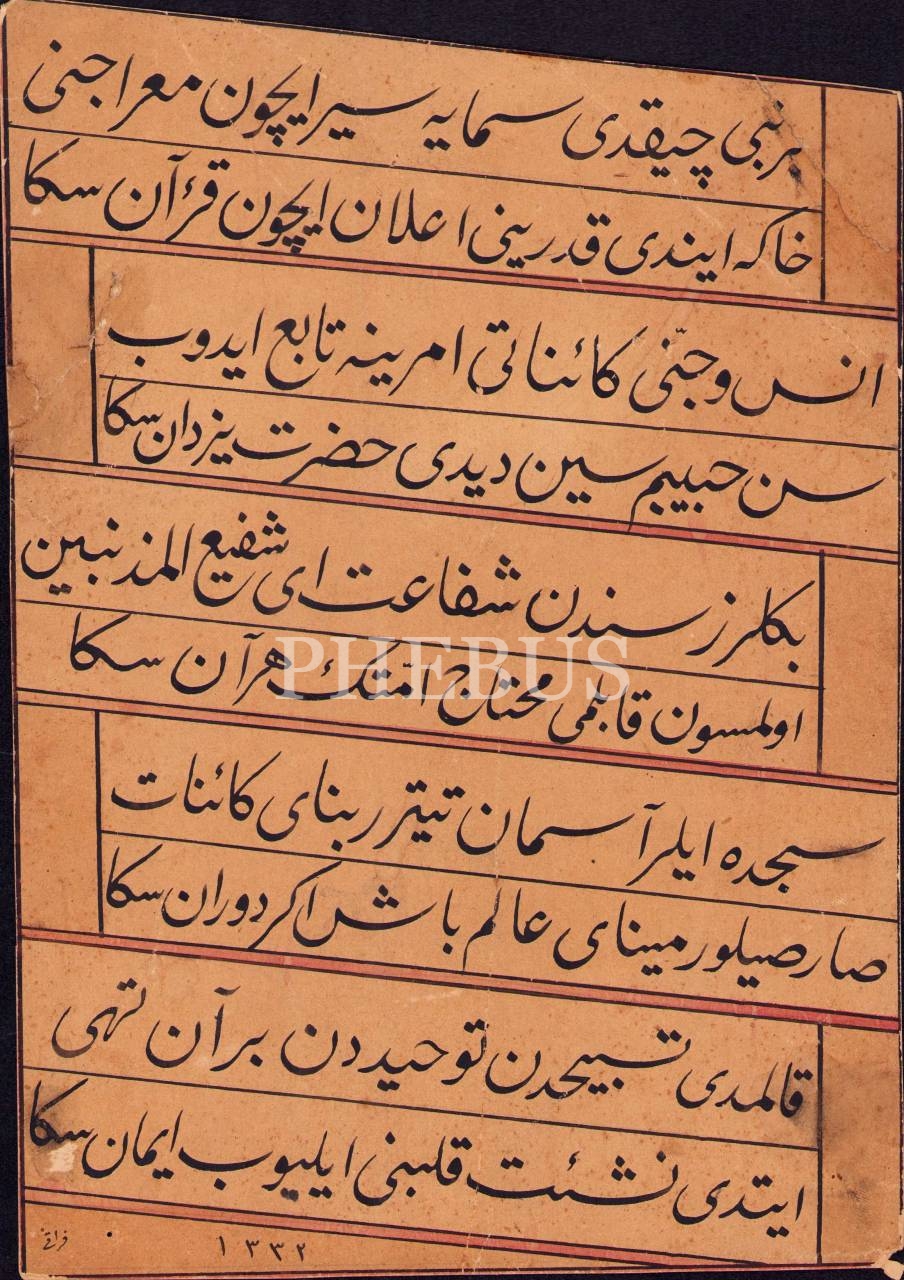 بر نبی چیقدی سمایه سیر ایچون معراجنی
خاکه ایندی قدرینی اعلان ایچون قرآن سکا
انس وجنّی کائناتی امرینه تابع ایدوب
سن حبیبم سین دیدی حضرت یزدان سکا
بکلرز سندن شفاعت ای شفیع المذنبین
اولمسون قابلمی محتاج امّتک هر آن سکا
سجده ایلر آسمان تیتر ربنای کائنات
صارصیلور مینای عالم باش اکر دوران سکا
قالمدی تسبیحدن توحیددن بر آن تهی
ایتدی نشئت قلبنی ایلیوب ایمان سکا
۱۳۳۲
PHEBUS